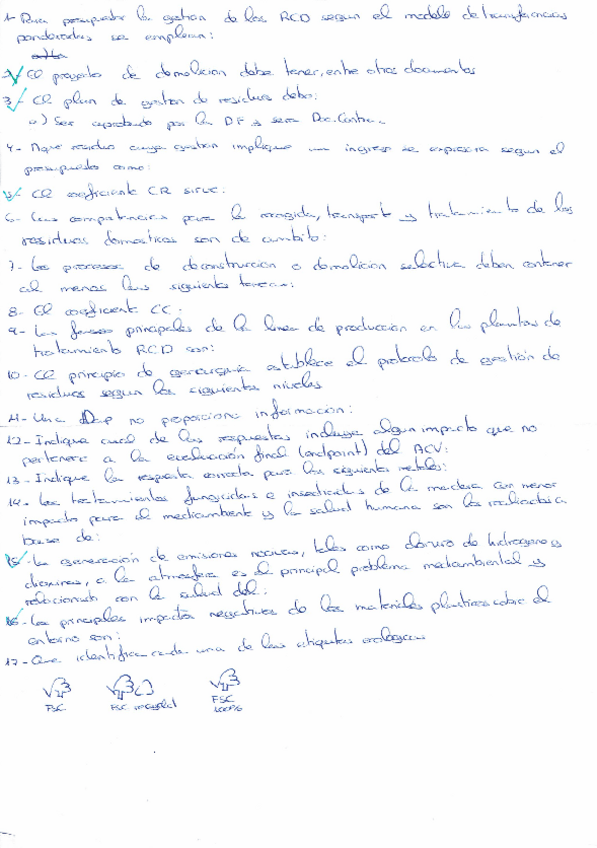 1- Para presupuestar la gestion de los RCD segun el modelo de transferencias
ponderadas se emplean:
2- El proyecto de demolicion debe tener, entre otros documentos
3- El plan de gestion de residuos debe:
a) Ser aprobado por la DF y sera Doc. Contrac.
4- Aquel residuo cuya gestion implique un ingreso se expresara segun el
presupuesto como:
5- El coeficiente CR sirve:
6- Las competencias para la recogida, transporte y tratamiento de los
residuos domesticos son de ambito:
7- Los procesos de deconstruccion o demolicion selectiva deben contener
al menos las siguientes tareas:
8- El coeficiente CC:
9- Las fases principales de la linea de produccion en las plantas de
tratamiento RCD son:
10- El principio de jerarquia establece el protocolo de gestión de
residuos segun los siguientes niveles
11- Una Dap no proporciona información:
12- Indique cual de las respuestas incluye algun impacto que no
pertenece a la evaluación final (endpoint) del ACV:
13- Indique la respuesta correcta para los siguientes metales:
14- Los tratamientos fungicidas e insecticidas de la madera con menor
impacto para el medioambiente y la salud humana son los realizados a
base de:
15- La generación de emisiones nocivas, tales como cloruro de hidrogeno y
dioxinas, a la atmosfera es el principal problema medioambiental y
relacionado con la salud del:
16- Los principales impactos negativos de los materiales plasticos sobre el
entorno son:
17- Que identifica cada una de las etiquetas ecologicas
FSC FSC FSC